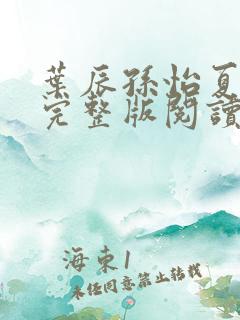 葉辰孫怡夏
完整版閱讀
海東1
未经同意禁止转载